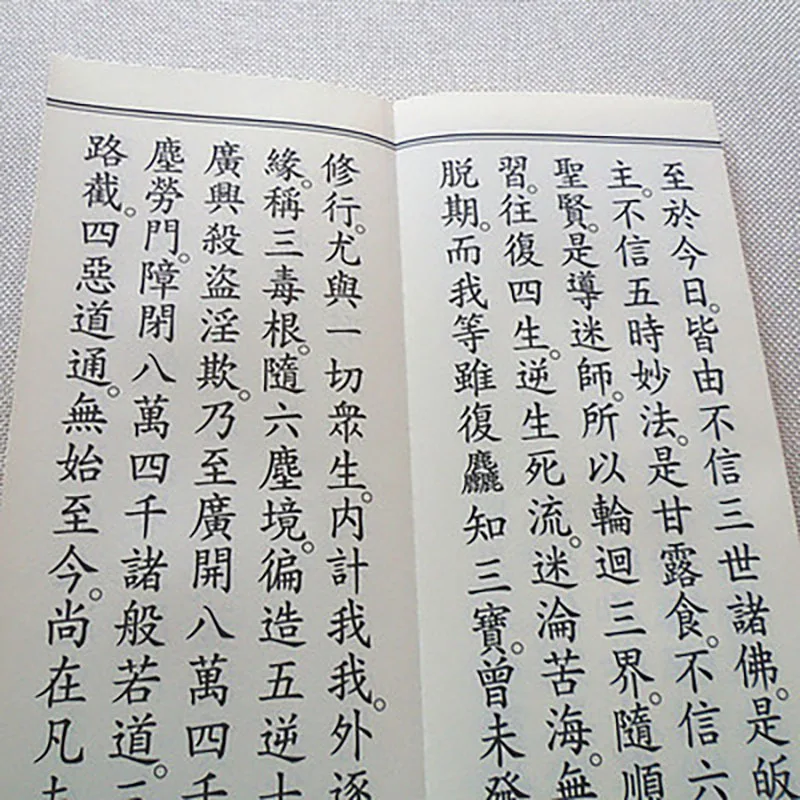 至於今日。皆由不信三世諸佛。是皈
主。不信五時妙法。是甘露食。不信六
聖賢。是導迷師。所以輪迴三界。隨順
習。往復四生。逆生死流。迷淪苦海。無
脱期。而我等雖復麤知三寶。曾未發
修行。尤與一切眾生。内計我我。外逐
緣。稱三毒根。隨六塵境。徧造五逆十
廣興殺盜淫欺。乃至廣開八萬四千
塵勞門。障閉八萬四千諸般若道。三
路截。四惡道通。無始至今。尚在凡